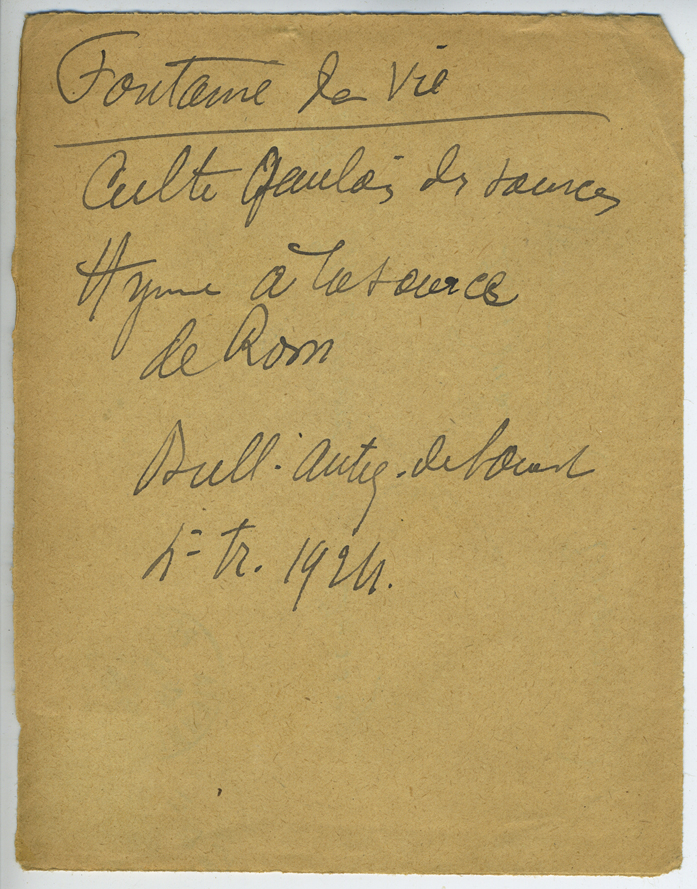 Fontaine de Vie
Culte Gaulois des sources
Hymne à la source
de Rom
Bull. Antiq. de l'ouest
4e tr. 1924.